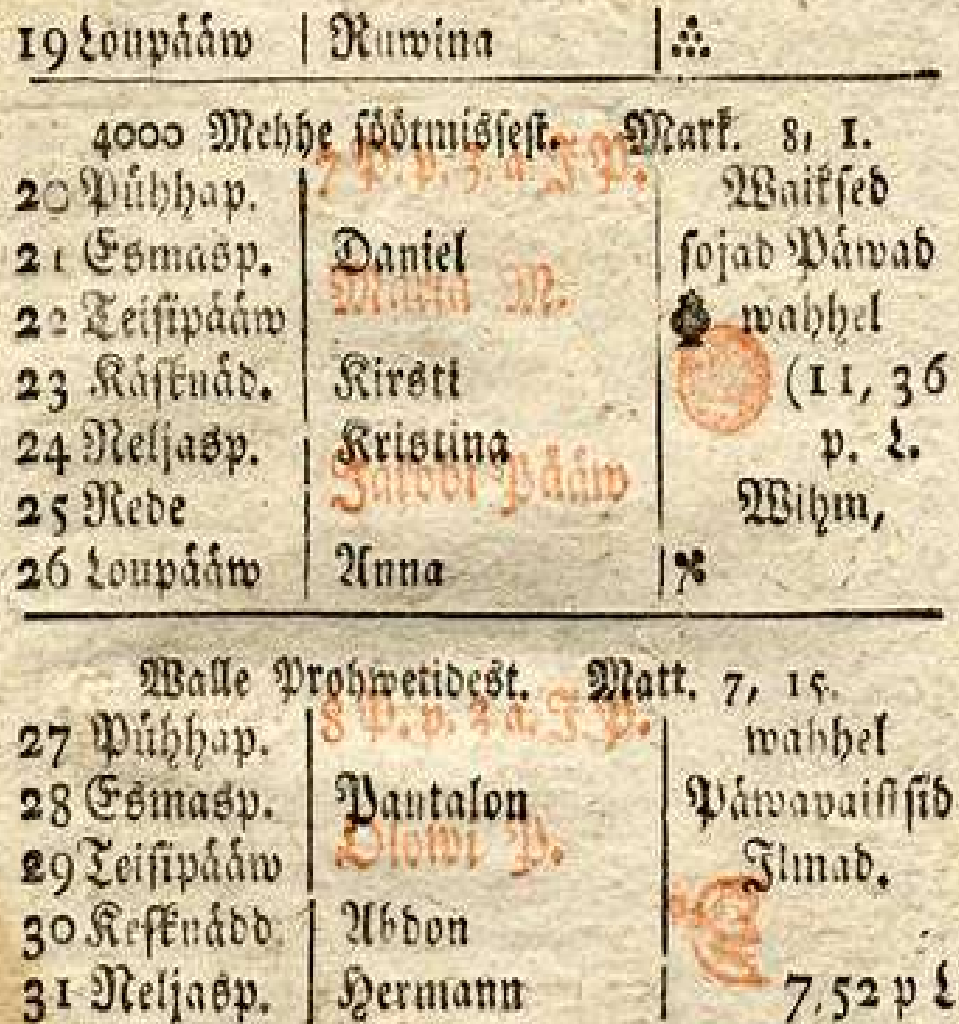 19 Loupääw Ruwina
4000 Mehhe söötmissest. Mark. 8, 1.
20 Pühhap. 7 P. p. 3. a. J P. Waiksed
21 Esmasp. Daniel sojad Päwad
22 Teisipääw Maria M. wahhel
23 Käsknäd. Kirsti (11, 36
24 Neljasp. Kristina p. L.
25 Rede Jakobi Pääw Wihm,
26 Loupääw Anna
Walle Prohwetidest. Matt. 7, 15.
27 Pühhap. 8 P. p. 3 a. J P. wahhel
28 Esmasp. Pantalon Päwapaistsid
29 Teisipääw Olowi P. Ilmad.
30 Kesknädd. Abdon
31 Neljasp. Hermann 7,52 p L